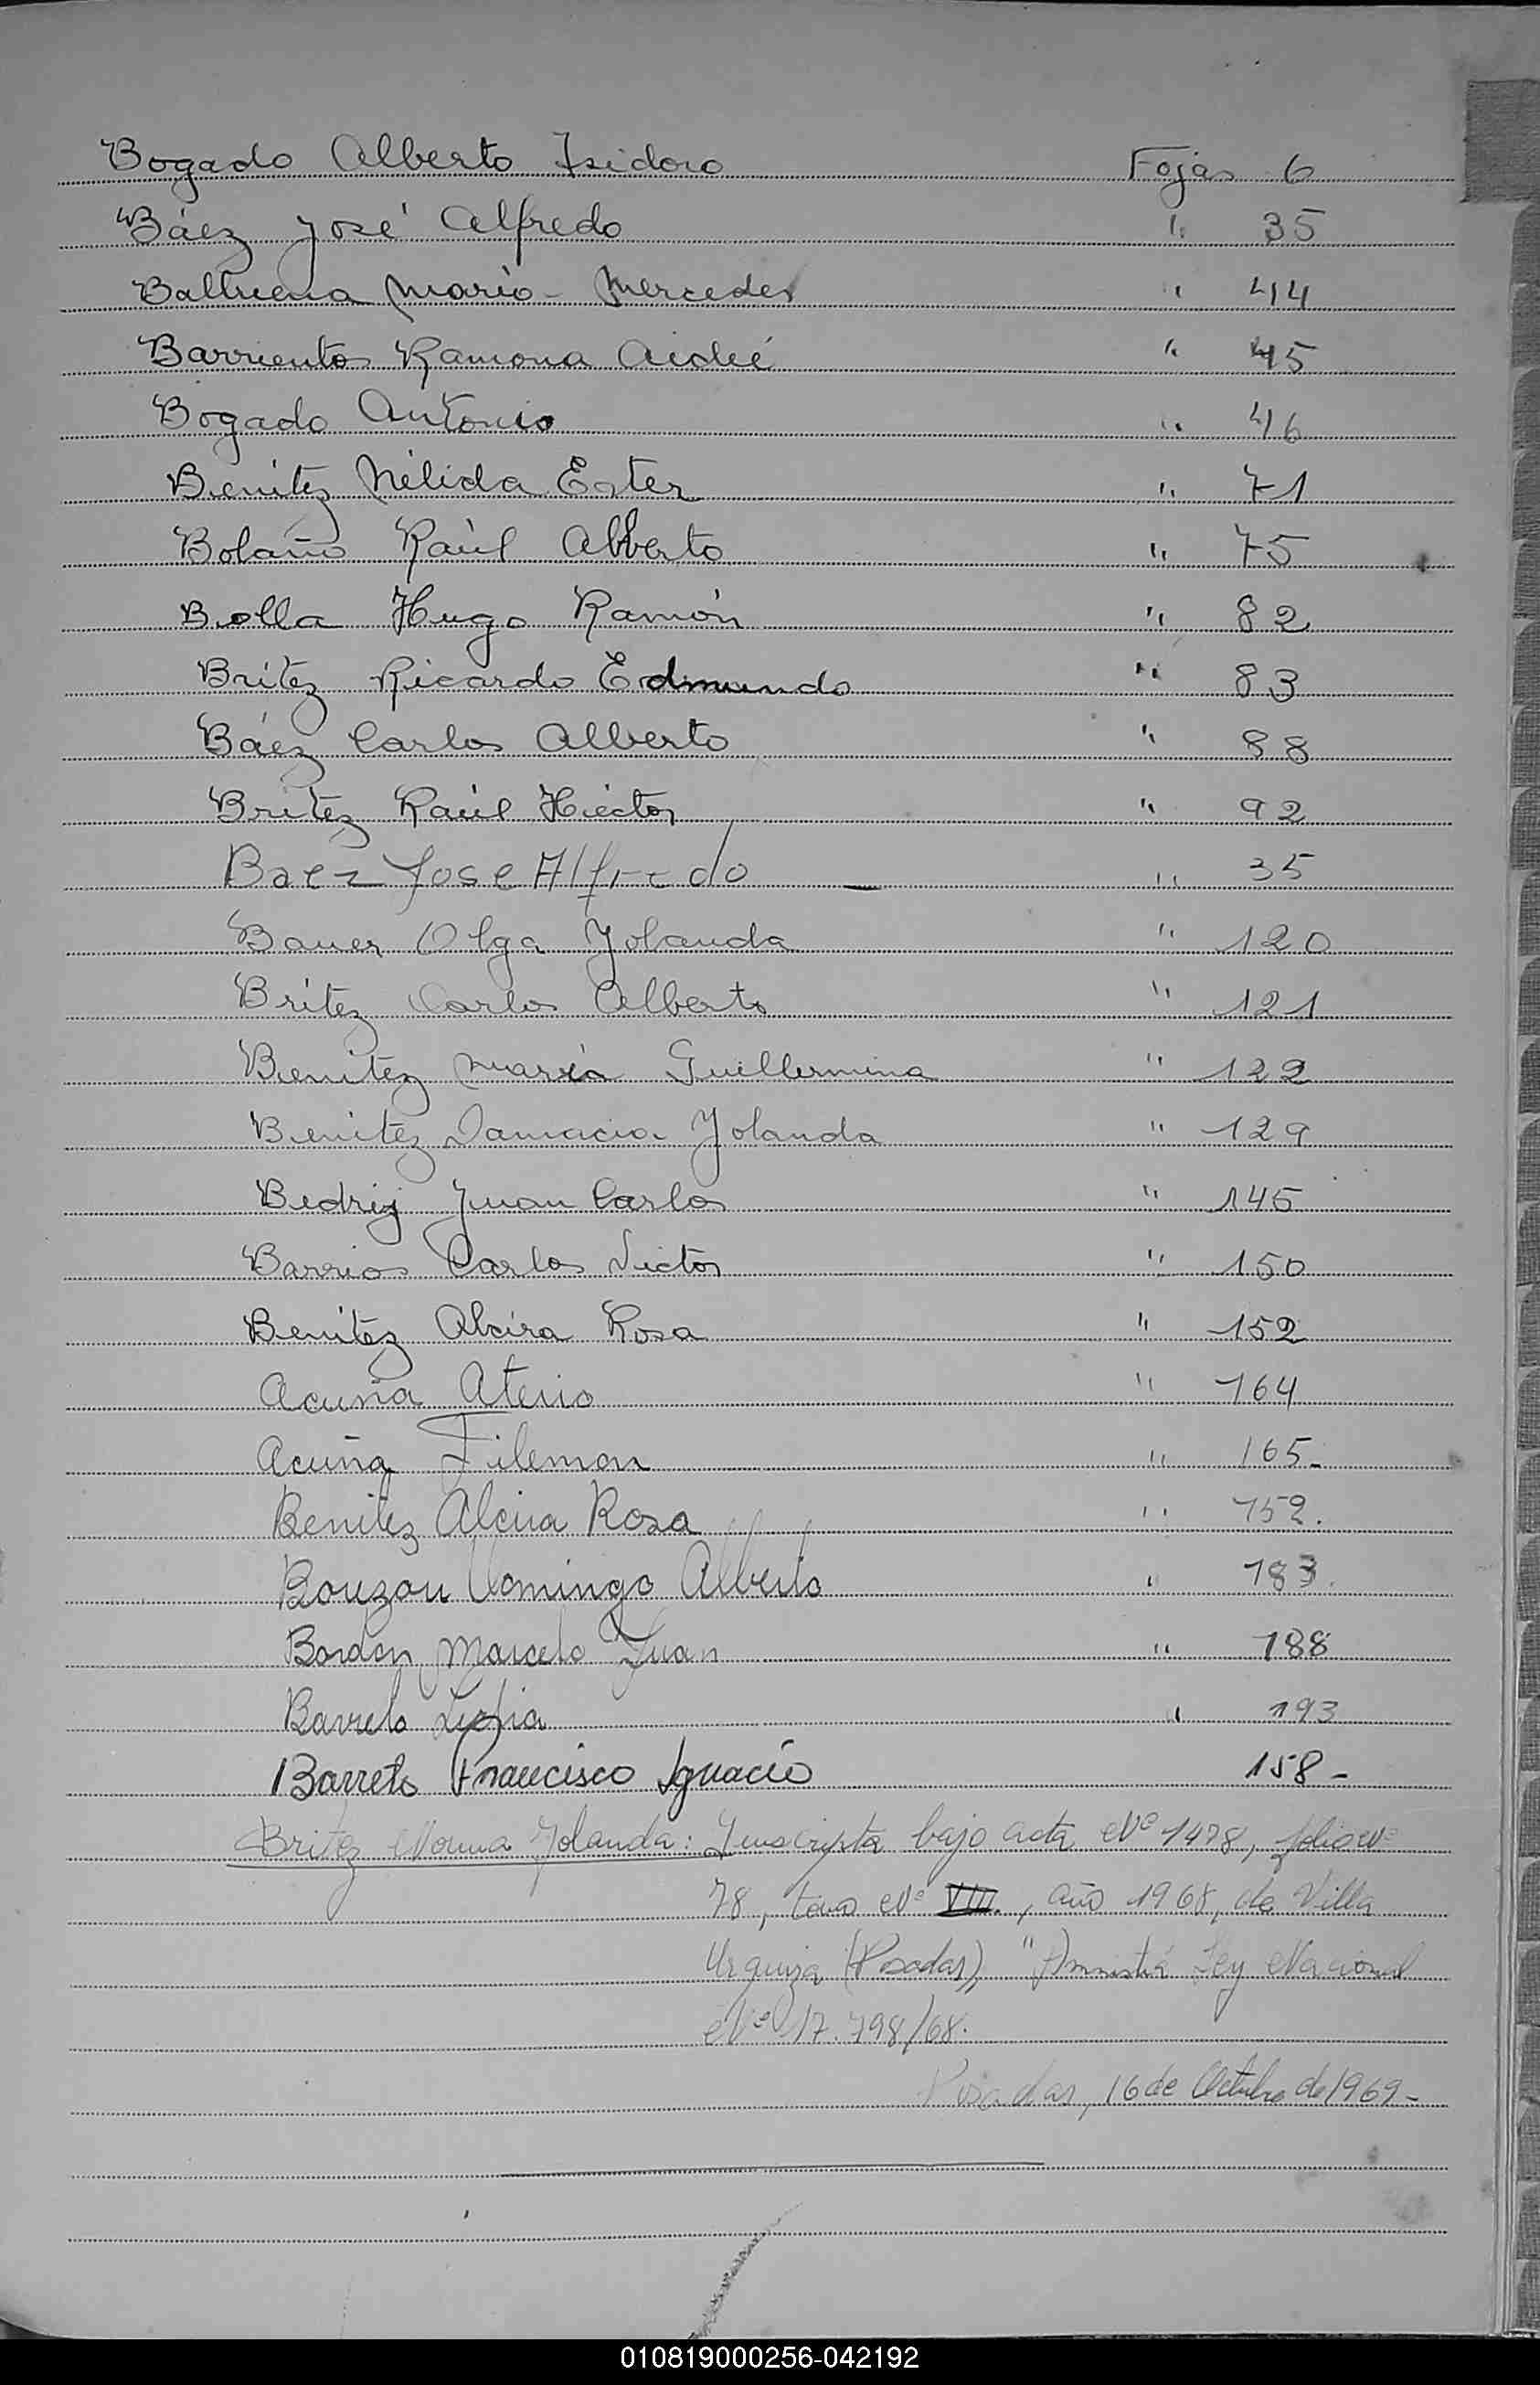 Bogado Alberto Isidoro Fojas 6
Báez José Alfredo " 35
Mario Mercedes " 44
Barrientos Ramona Aideé " 45
Bogado Antonio " 46
Benítez Nélida Ester " 71
Bolaño Raúl Alberto " 75
Bolla Hugo Ramón " 82
Brítez Ricardo Edmundo " 83
Báez Carlos Alberto " 88
Brítez Raúl Héctor " 92
Baez Jose Alfredo — " 35
Bauer Olga Yolanda " 120
Brítez Carlos Alberto " 121
Benítez María Guillermina " 122
Benítez Damacia Yolanda " 129
Bedrij Juan Carlos " 145
Barrios Carlos Victor " 150
Benítez Alcira Rosa " 152
Acuña " 164
Acuña Filemon " 165-
Benitez Alcira Rosa " 152.
Bouzon Domingo Alberto " 183.
Bordon Marcelo Juan " 188
Barreto Ligia " 193
Barreto Francisco Ignacio 158-
Britez Norma Yolanda: Inscripta bajo acta Nº 1478, folio Nº
78, tomo Nº VIII., año 1968, de Villa
Urquiza (Posadas), "Amnistía Ley Nacional
Nº 17.798/68.
Posadas, 16 de Octubre de 1969-
010819000256-042192